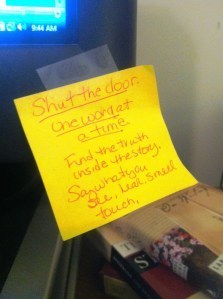 9:44 AM
Shut the door.
one word at
a time
Find the truth
inside the story.
Say what you
see, hear, smell
touch,